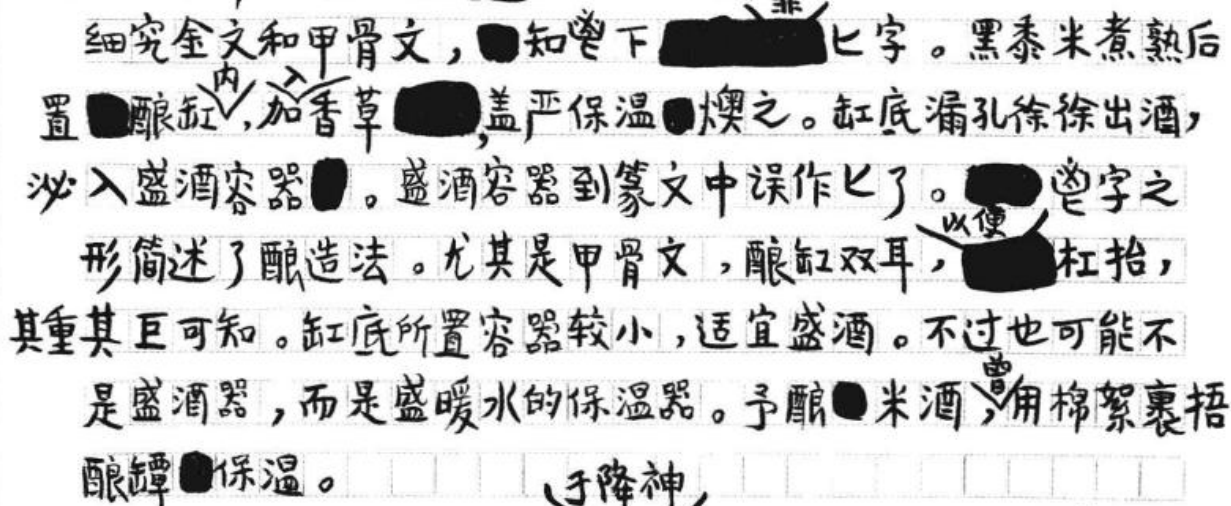 细究金文和甲骨文，知鬯下非匕字。黑黍米煮熟后
置酿缸内，加入香草，盖严保温燠之。缸底漏孔徐徐出酒，
泌入盛酒容器。盛酒容器到篆文中误作匕了。鬯字之
形简述了酿造法。尤其是甲骨文，酿缸双耳，以便杠抬，
其重其巨可知。缸底所置容器较小，适宜盛酒。不过也可能不
是盛酒器，而是盛暖水的保温器。予酿米酒，曾用棉絮裹捂
酿罈保温。
于降神